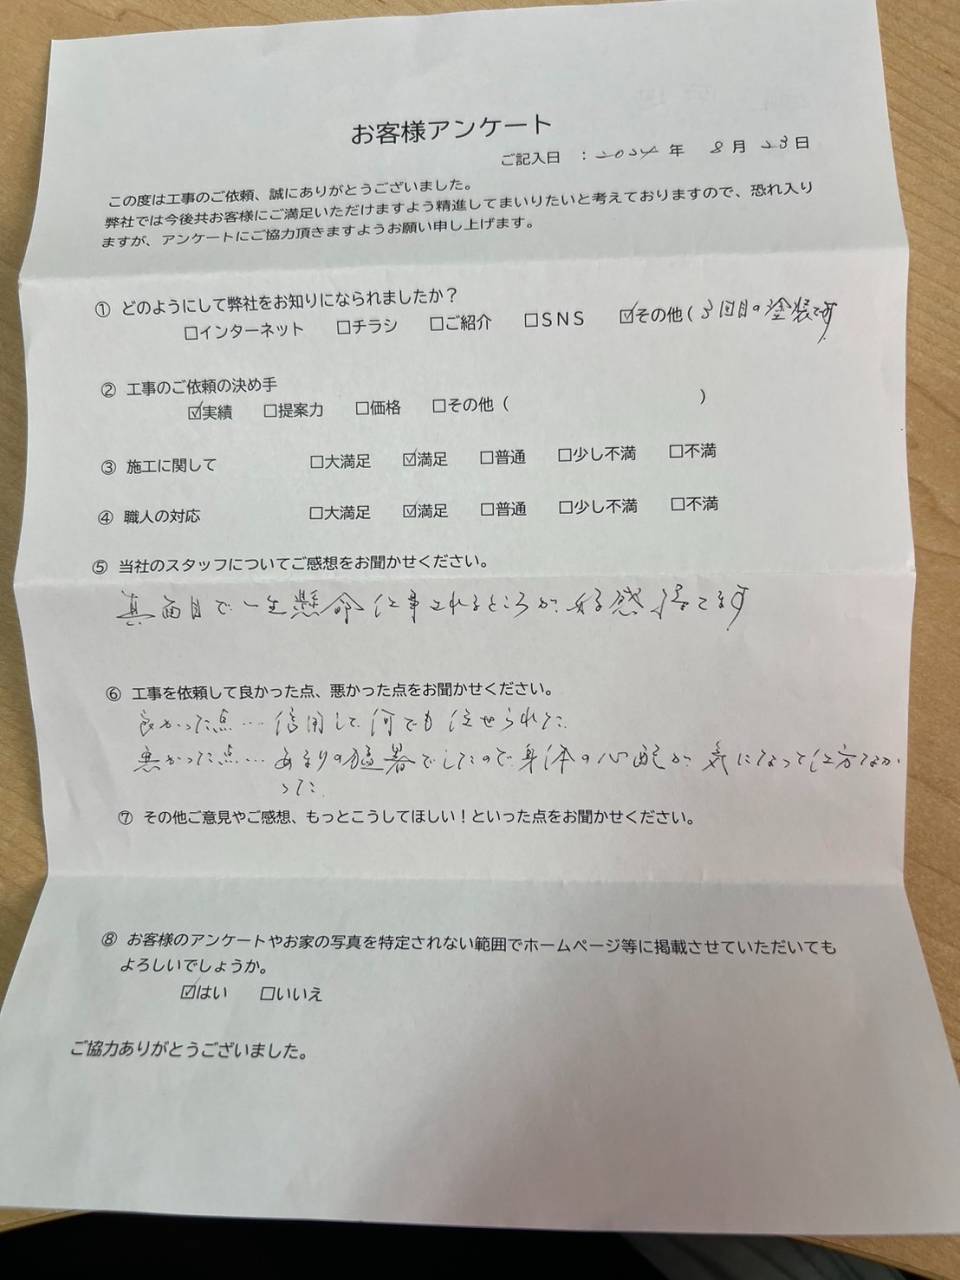 お客様アンケート
ご記入日 : 2024 年 8 月 23 日
この度は工事のご依頼、誠にありがとうございました。
弊社では今後共お客様にご満足いただけますよう精進してまいりたいと考えておりますので、恐れ入り
ますが、アンケートにご協力頂きますようお願い申し上げます。
① どのようにして弊社をお知りになられましたか？
□インターネット □チラシ □ご紹介 □ＳＮＳ ☑その他（3回目の塗装です
② 工事のご依頼の決め手
☑実績 □提案力 □価格 □その他（ ）
③ 施工に関して □大満足 ☑満足 □普通 □少し不満 □不満
④ 職人の対応 □大満足 ☑満足 □普通 □少し不満 □不満
⑤ 当社のスタッフについてご感想をお聞かせください。
真面目で一生懸命仕事されるところが、好感持てます
⑥ 工事を依頼して良かった点、悪かった点をお聞かせください。
良かった点…信用して何でも任せられた
悪かった点…あまりの猛暑でしたので身体の心配が気になって仕方なか
った
⑦ その他ご意見やご感想、もっとこうしてほしい！といった点をお聞かせください。
⑧ お客様のアンケートやお家の写真を特定されない範囲でホームページ等に掲載させていただいても
よろしいでしょうか。
☑はい □いいえ
ご協力ありがとうございました。